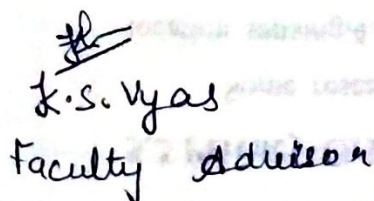 K.S. Vyas
Faculty Advisor